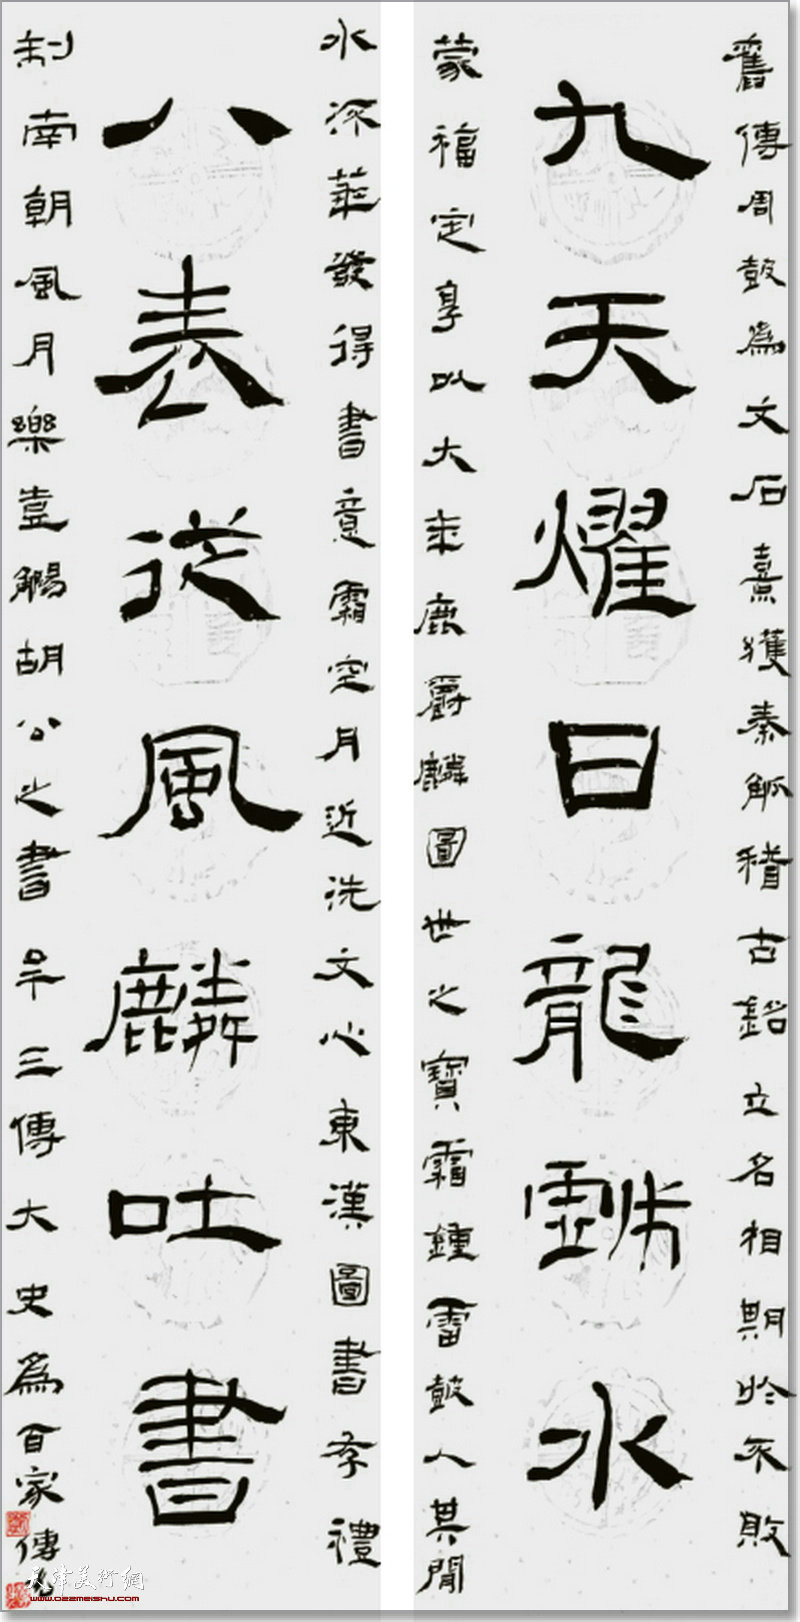 舊傳周鼓為文石熹獲秦觚稽古銘立名相期於不敗
九天燿日龍水
蒙福定享以大年鹿爵麟圖世之寶霜鍾雷鼓人其聞
水華發得書意霜空月近洗文心東漢圖書存禮
八表從風麟吐書
制南朝風月樂壺觴胡公之書三傳大史為百家傳
天津美術網
www.022meishu.com